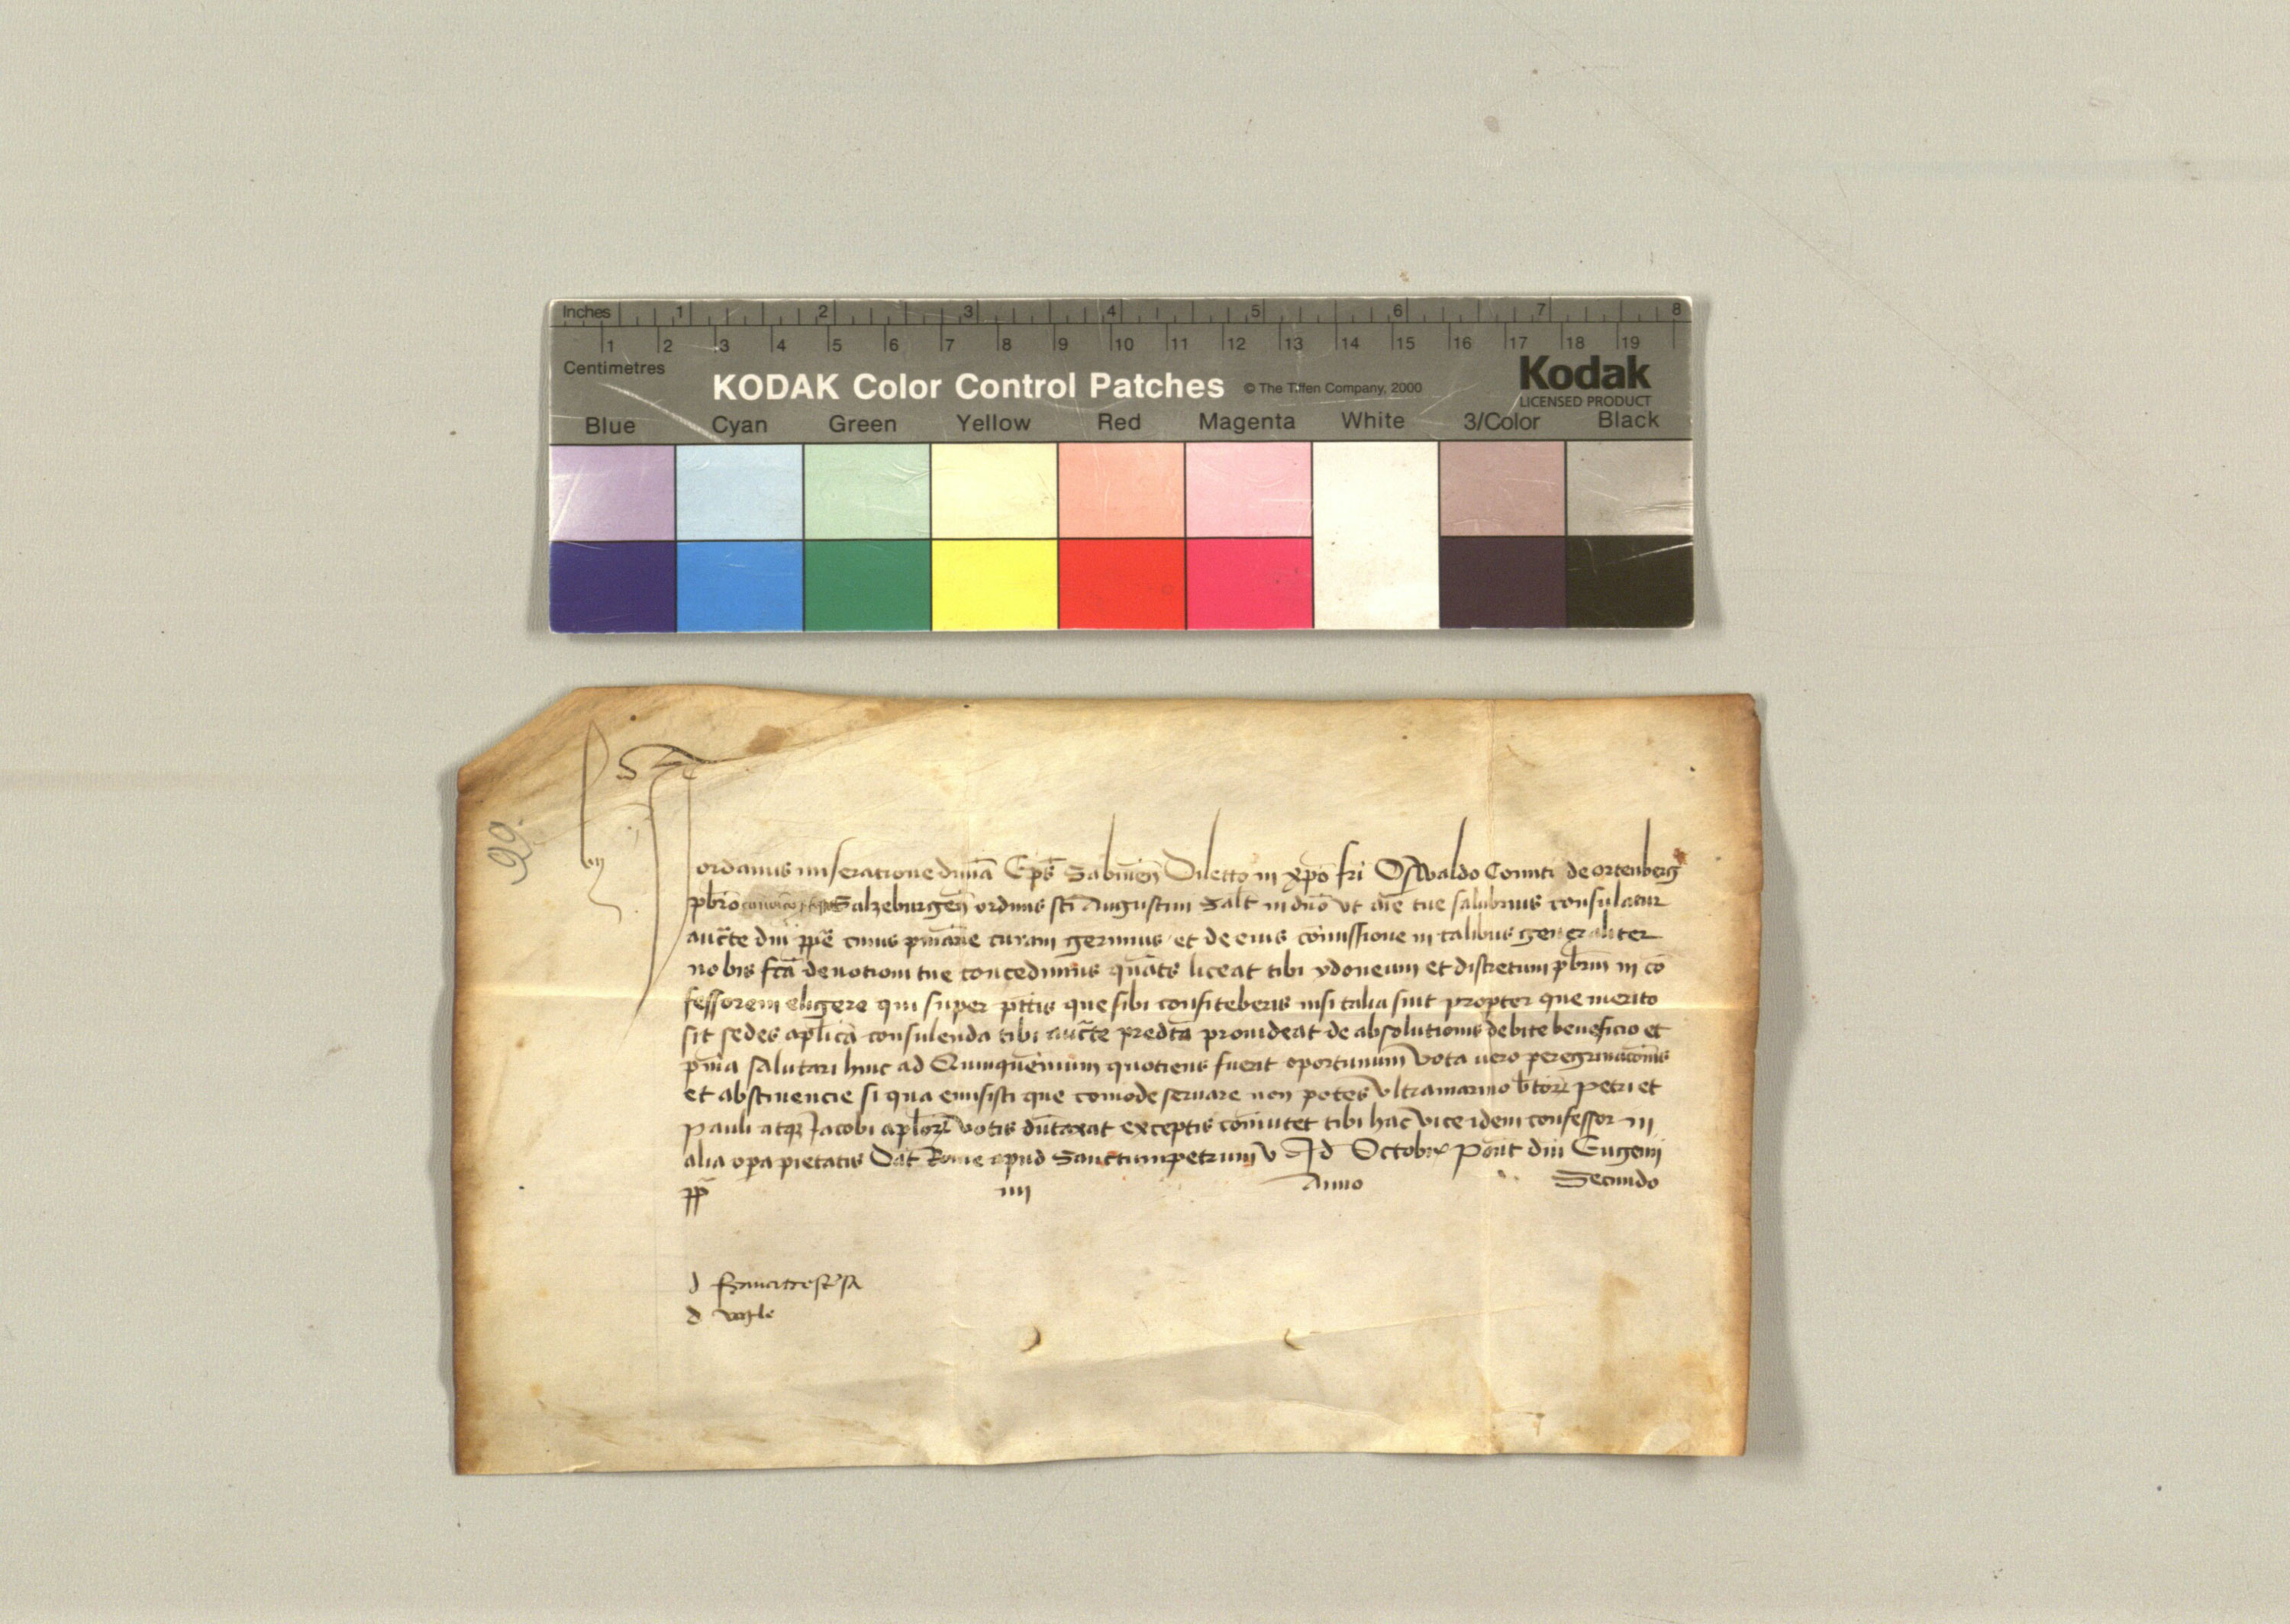 Inches 1 2 3 4 5 6 7 8
1 2 3 4 5 6 7 8 9 10 11 12 13 14 15 16 17 18 19
Centimetres
KODAK Color Control Patches © The Tiffen Company, 2000 Kodak
LICENSED PRODUCT
Blue Cyan Green Yellow Red Magenta White 3/Color Black
99.
Jordanus miseratione diuīa Ep̄s Sabineñ Dilecto in xp̄o fri Oswaldo Comiti de ortenberg
pbr̄o Salzeburgeñ ordinis sc̄i Augustini Salt̄ in dn̄o vt aīe tue salubrius consulatur
auct̄e dnī pp̄e cuius pn̄iarie curam gerimus et de eius cōmissione in talibus generaliter
nobis fc̄ā deuotioni tue concedimus quat̄s liceat tibi ydoneum et discretum pbr̄m in cō
fessorem eligere qui super pctīs que sibi confiteberis nisi talia sint propter que merito
sit sedes aplīcā consulenda tibi auct̄e predc̄ā prouideat de absolutionis debite beneficio et
pn̄ia salutari hinc ad Quinquēnium quotiens fuerit oportunum Vota uero peregrinacōnis
et abstinencie si qua emisisti que comode seruare non potes vltramarino bt̄oꝝ Petri et
Pauli atqꝫ Jacobi apl̄oꝝ votis dūtaxat exceptis cōmutet tibi hac vice idem confessor in
alia opa pietatis Dat̄ Rome apud Sanctumpetrum v Id Octobr̄ Pont̄ dnī Eugenij
pp̄ iiij Anno Secundo